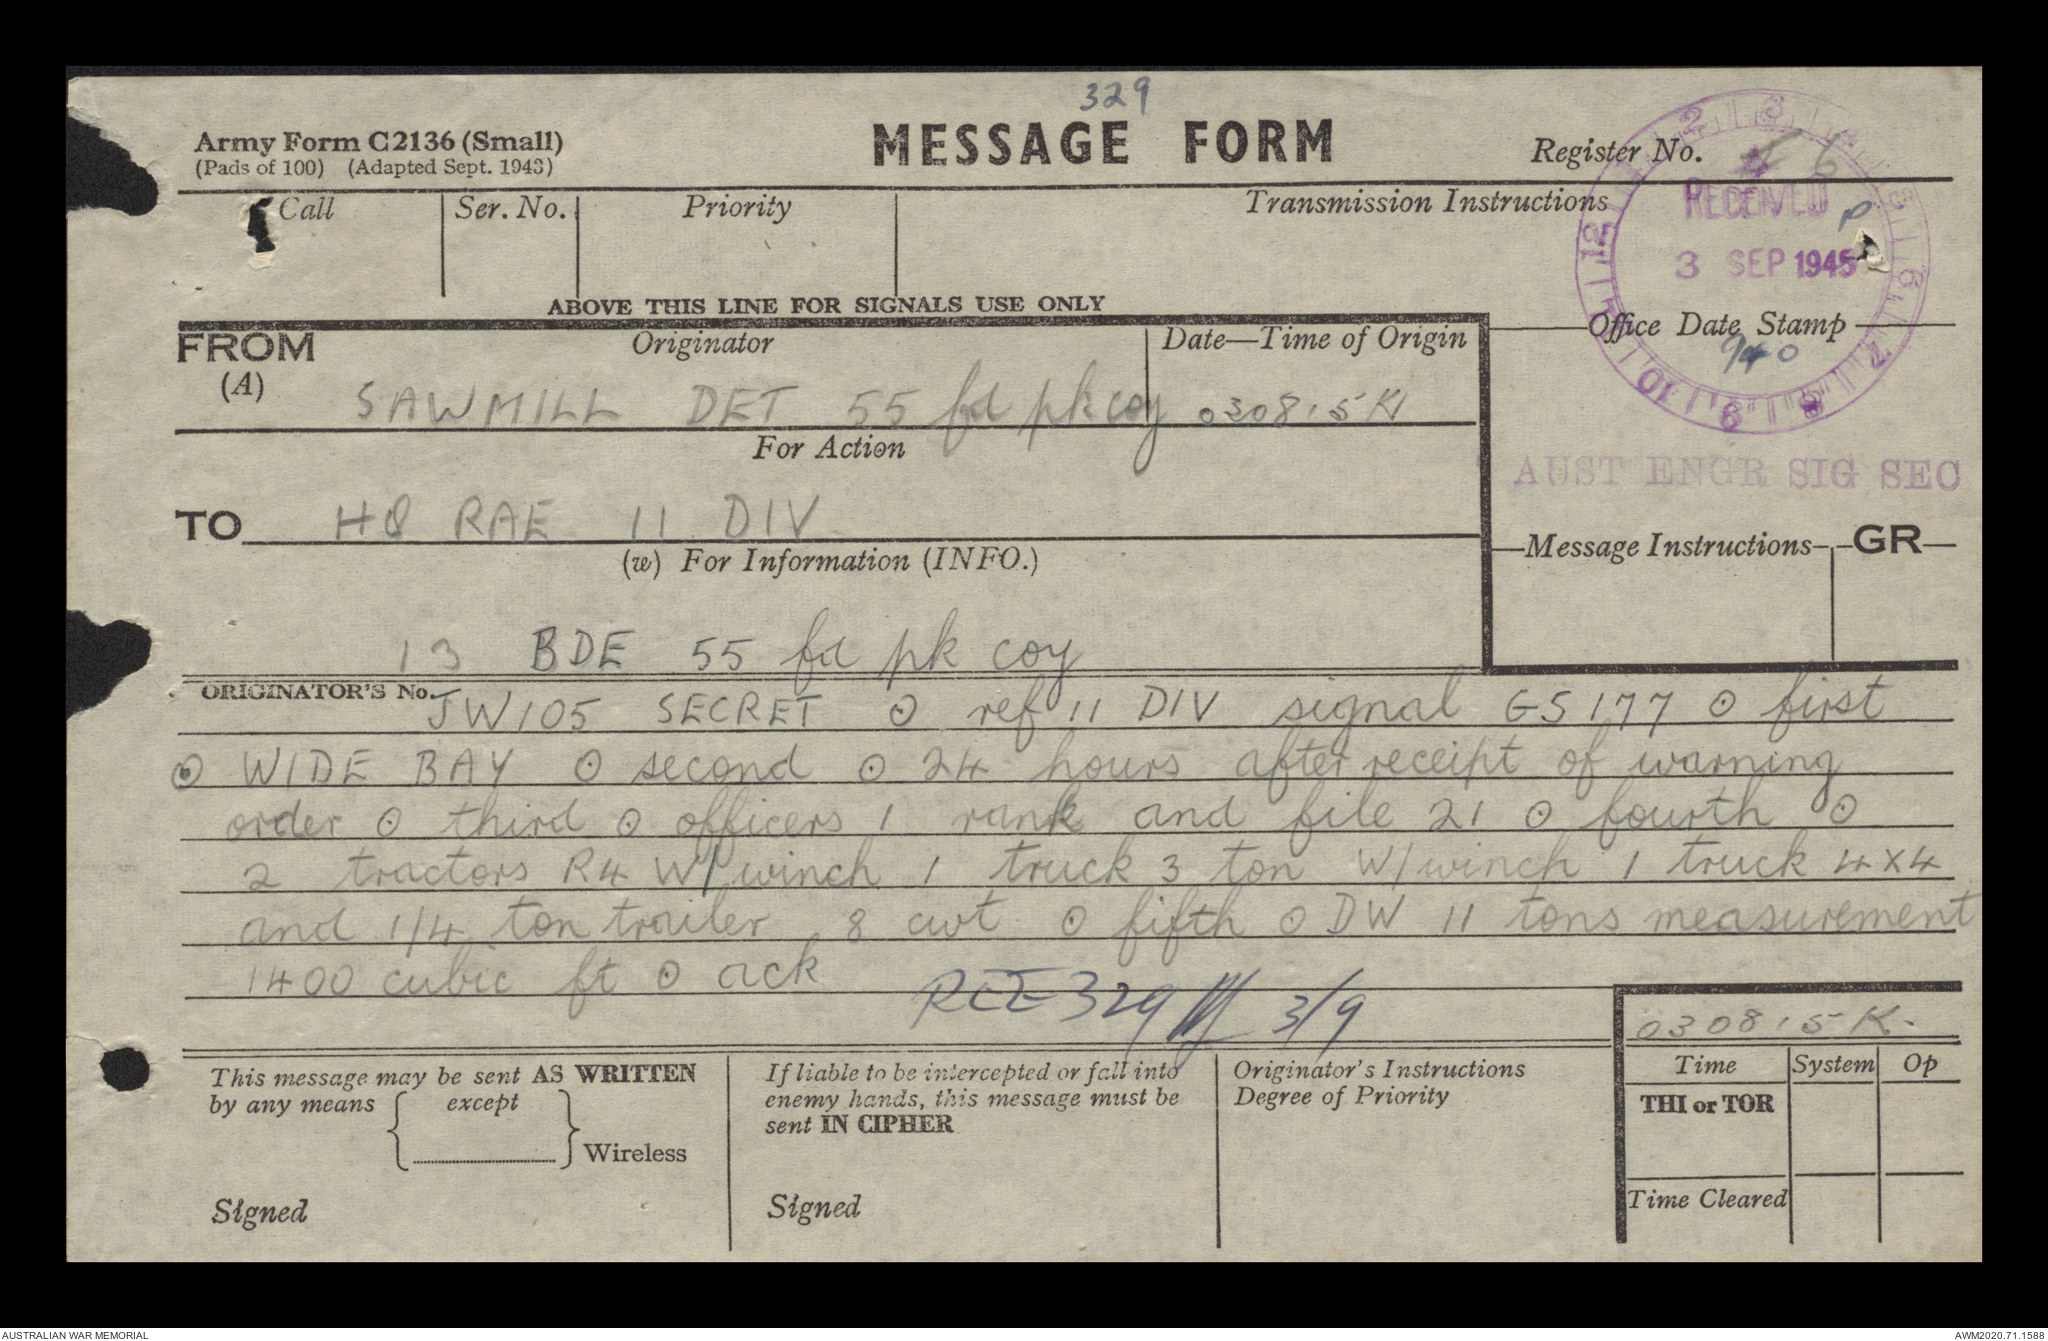 329
Army Form C2136 (Small)
(Pads of 100) (Adapted Sept. 1943)
MESSAGE FORM
Register No.
Call
Ser. No.
Priority
Transmission Instructions
RECEIVED
3 SEP 1945
ABOVE THIS LINE FOR SIGNALS USE ONLY
Office Date Stamp
940
FROM
(A)
Originator
Date—Time of Origin
SAWMILL DET 55 fd pk coy 030815K
For Action
AUST ENGR SIG SEC
TO HQ RAE 11 DIV
(w) For Information (INFO.)
Message Instructions
GR
13 BDE 55 fd pk coy
ORIGINATOR'S No. JW105 SECRET ⊙ ref 11 DIV signal GS177 ⊙ first
⊙ WIDE BAY ⊙ second ⊙ 24 hours after receipt of warning
order ⊙ third ⊙ officers 1 rank and file 21 ⊙ fourth ⊙
2 tractors R4 W/winch 1 truck 3 ton W/winch 1 truck 4x4
and 1/4 ton trailer 8 cwt ⊙ fifth ⊙ DW 11 tons measurement
1400 cubic ft ⊙ ack
329 3/9
030815K.
This message may be sent AS WRITTEN
by any means { except } Wireless
Signed
If liable to be intercepted or fall into
enemy hands, this message must be
sent IN CIPHER
Signed
Originator's Instructions
Degree of Priority
Time
System
Op
THI or TOR
Time Cleared
AUSTRALIAN WAR MEMORIAL
AWM2020.71.1588